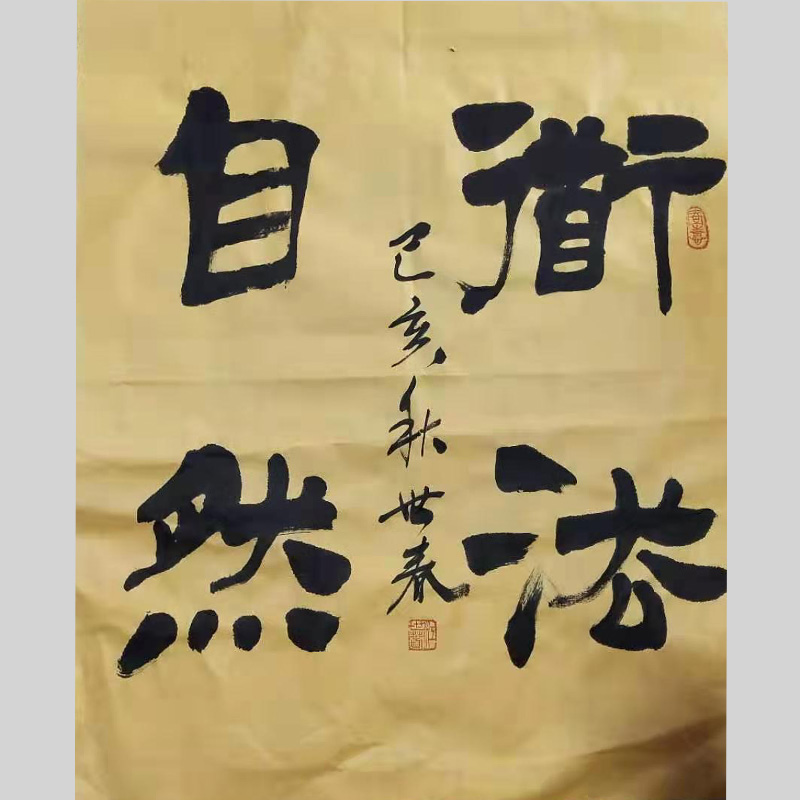 衜法
自然
己亥秋世春